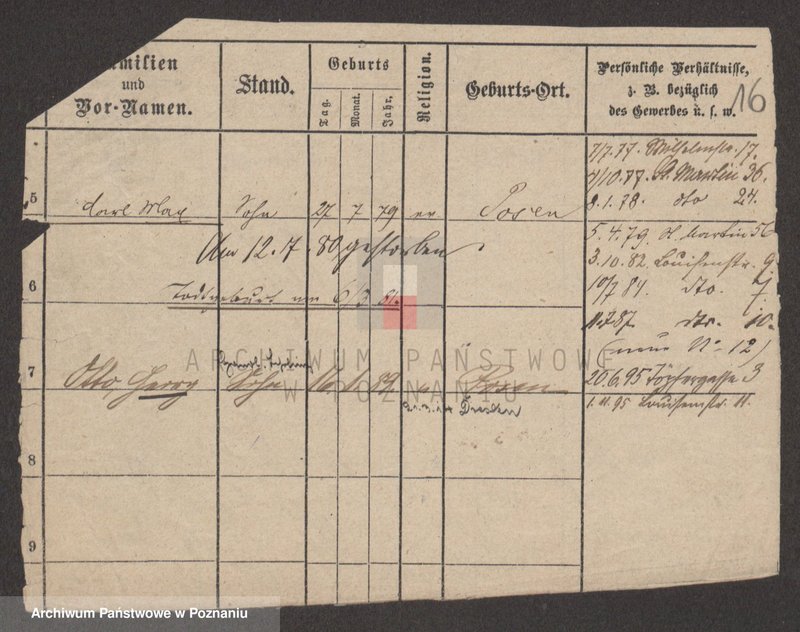 Familien
und
Vor-Namen.
Stand.
Geburts
Tag.
Monat.
Jahr.
Religion.
Geburts-Ort.
Persönliche Verhältnisse,
z. B. bezüglich
des Gewerbes u. s. w.
16
1/7.77. Wilhelmstr. 17.
1/10.77. St. Martin 36.
2.1.78. dto 24.
5 Carl Max Sohn 27 7 79 ev Posen
5.4.79. St. Martin 56
Am 12.7.80 gestorben.
3.10.82. Louisenstr. 9.
6 Todtgeburt am 6/3 81.
10/7 84. dto. 7.
11.7.87. dto. 10.
(neue No 12)
7 Otto, Georg Sohn 89 Posen
20.6.95 Töpfergasse 3
1.11.95 Louisenstr. 11.
Dresden
8
9
ARCHIWUM PAŃSTWOWE
W POZNANIU
Archiwum Państwowe w Poznaniu